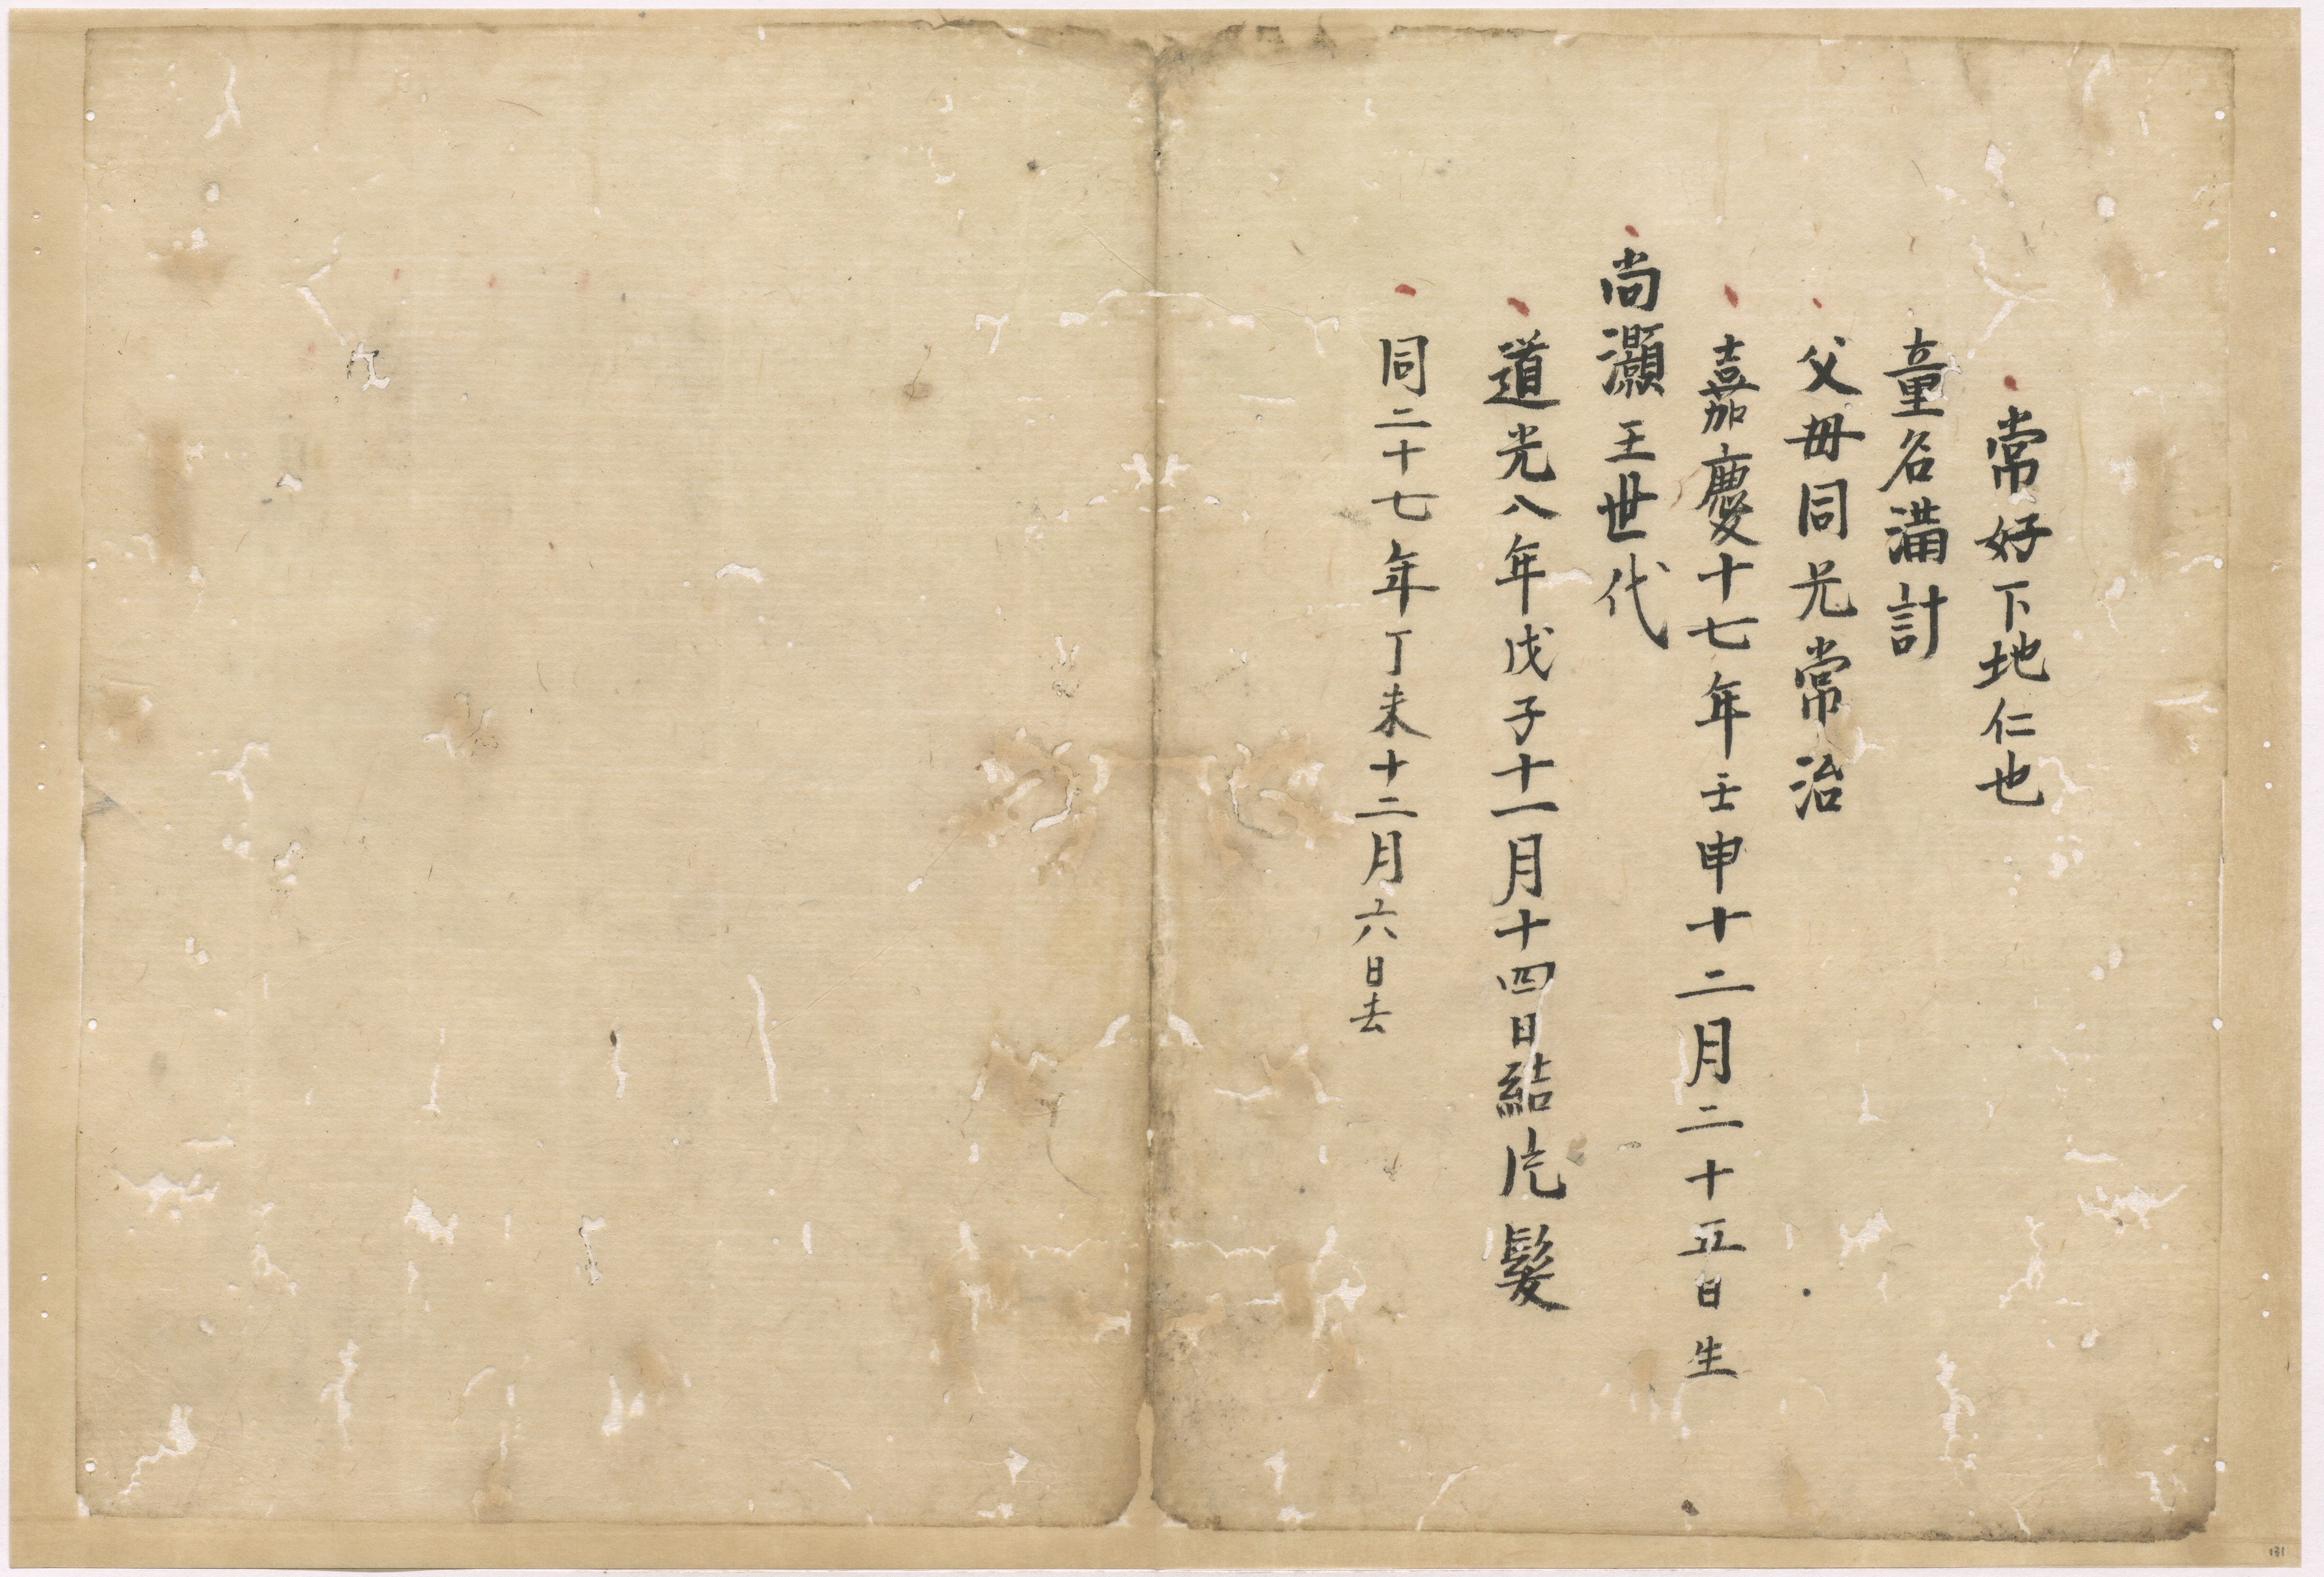 常好下地仁也
童名滿計
父母同兄常治
嘉慶十七年壬申十二月二十五日生
尚灝王世代
道光八年戊子十一月十四日結片髮
同二十七年丁未十二月六日去
131